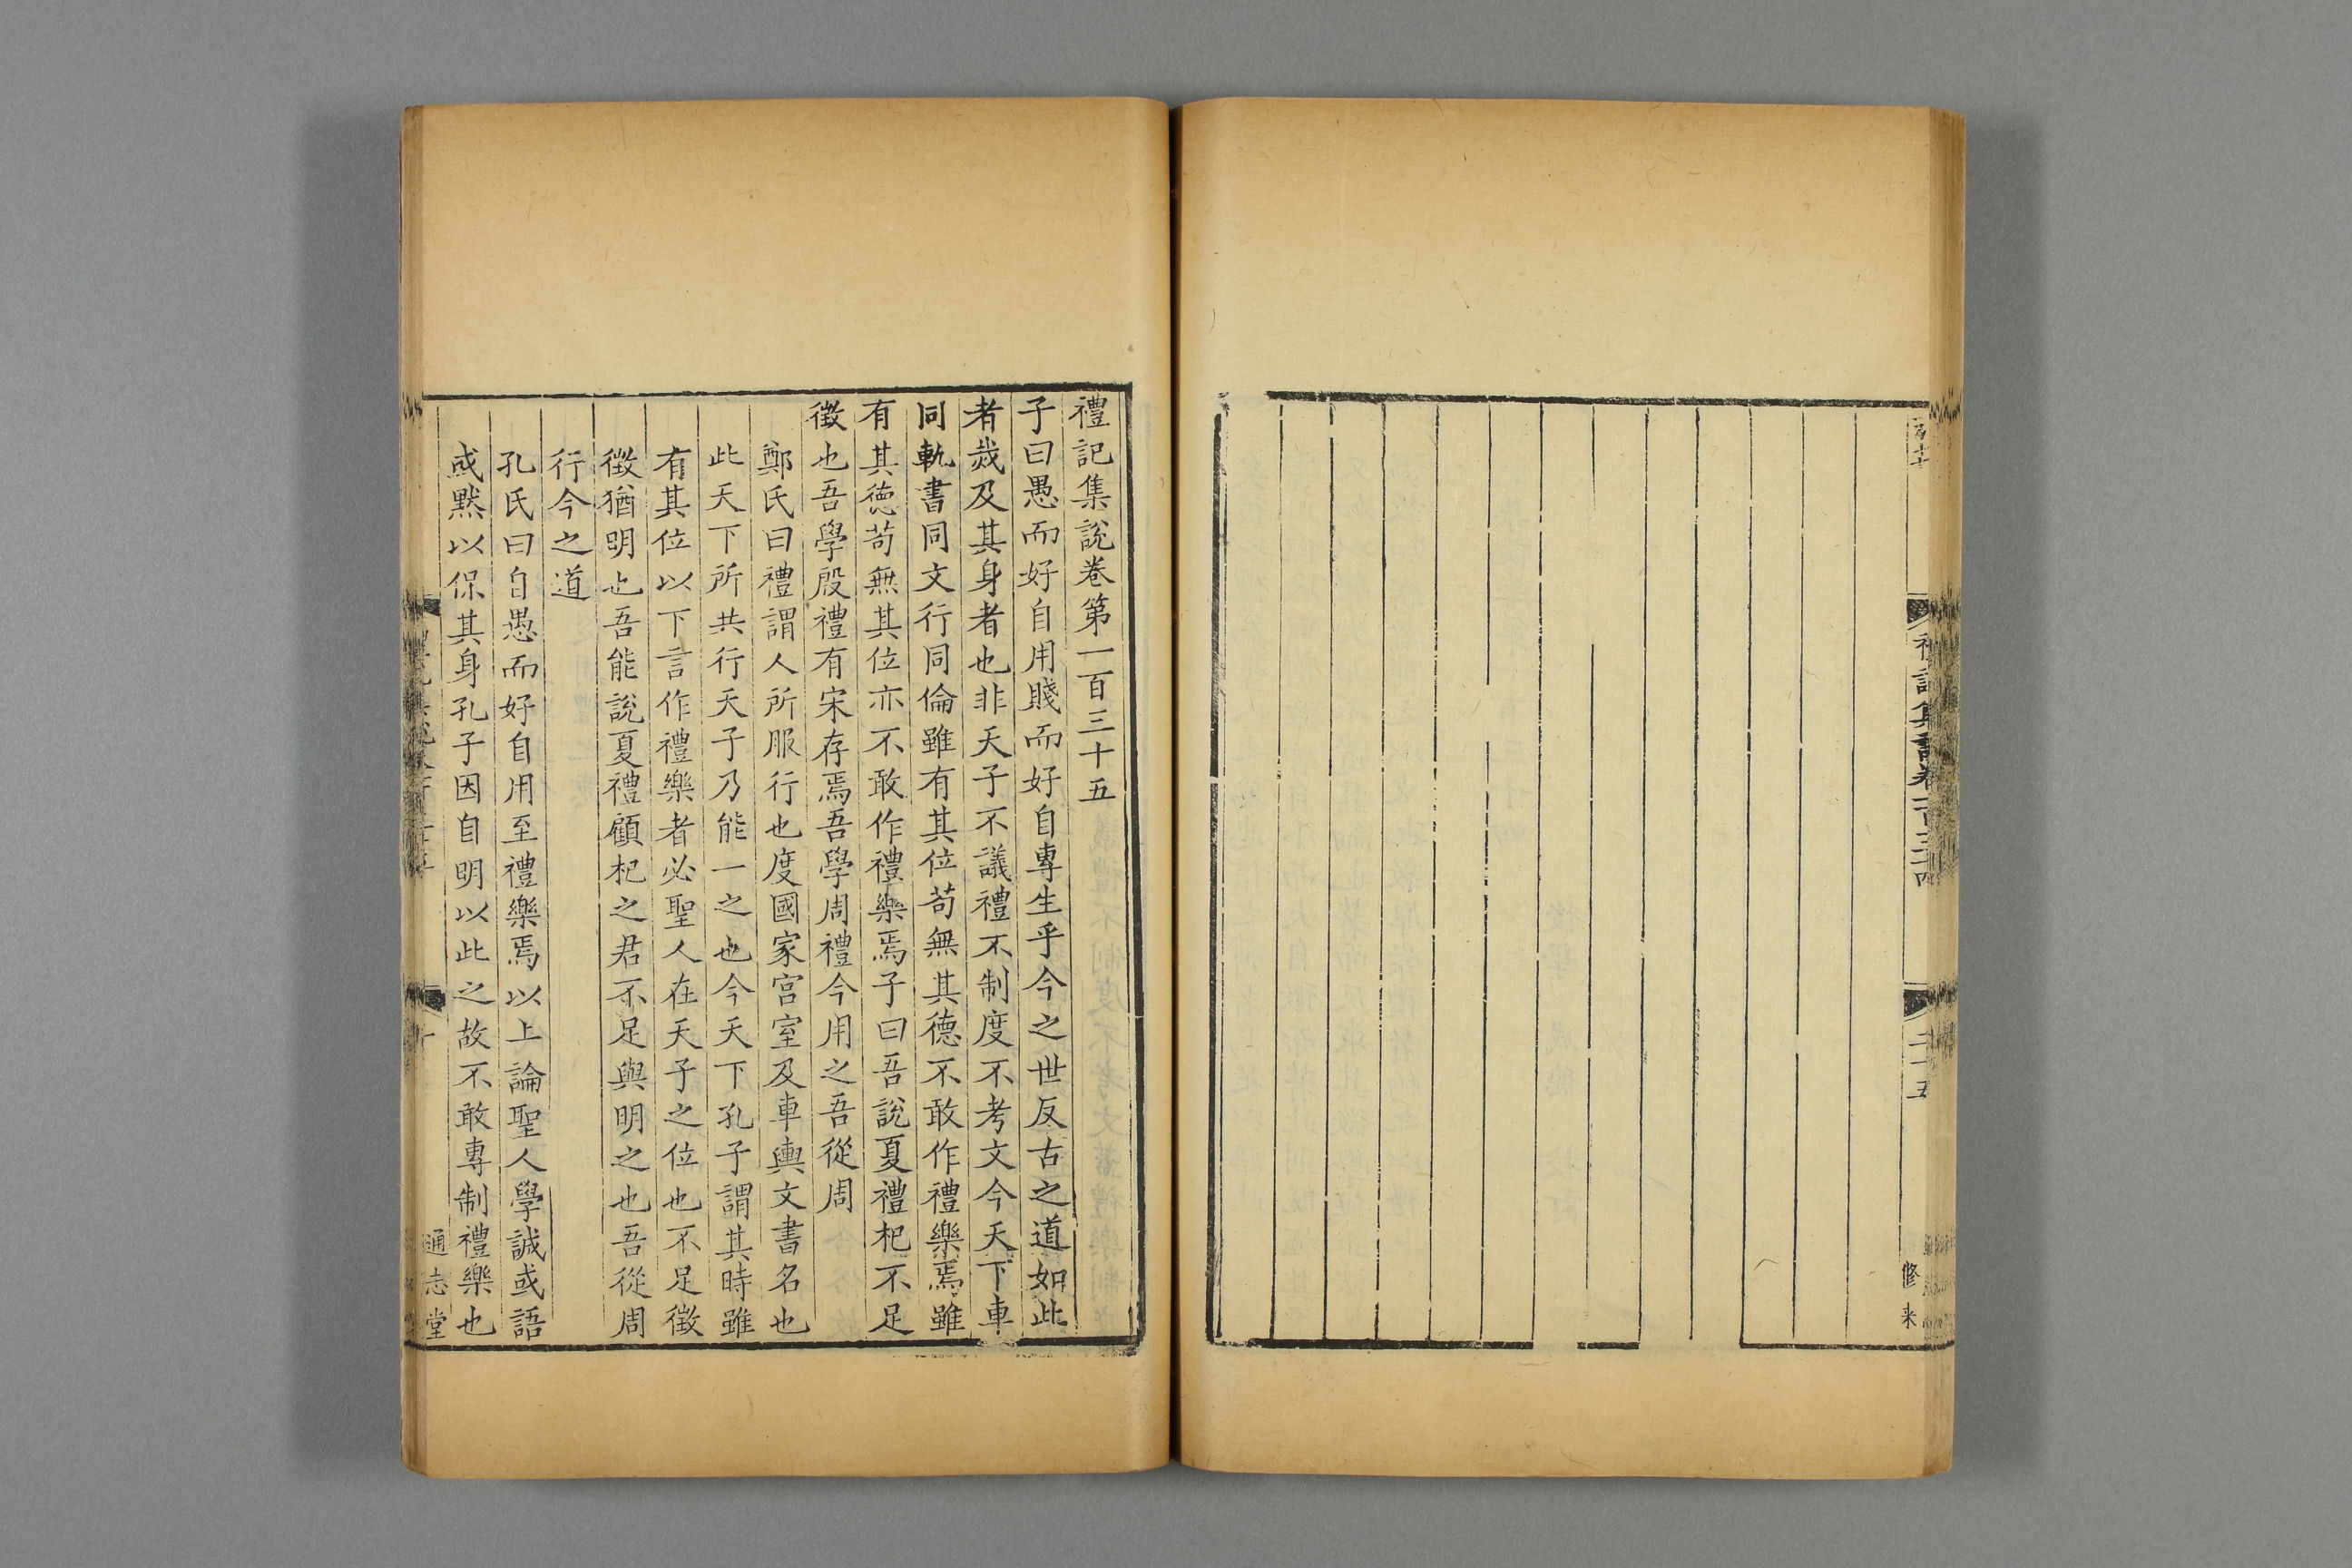 禮記集說卷第一百三十五
子曰愚而好自用賤而好自專生乎今之世反古之道如此
者烖及其身者也非天子不議禮不制度不考文今天下車
同軌書同文行同倫雖有其位苟無其德不敢作禮樂焉雖
有其德苟無其位亦不敢作禮樂焉子曰吾說夏禮杞不足
徵也吾學殷禮有宋存焉吾學周禮今用之吾從周
鄭氏曰禮謂人所服行也度國家宮室及車輿文書名也
此天下所共行天子乃能一之也今天下孔子謂其時雖
有其位以下言作禮樂者必聖人在天子之位也不足徵
徵猶明也吾能說夏禮顧杞之君不足與明之也吾從周
行今之道
孔氏曰自愚而好自用至禮樂焉以上論聖人學誠或語
或黙以保其身孔子因自明以此之故不敢專制禮樂也
通志堂